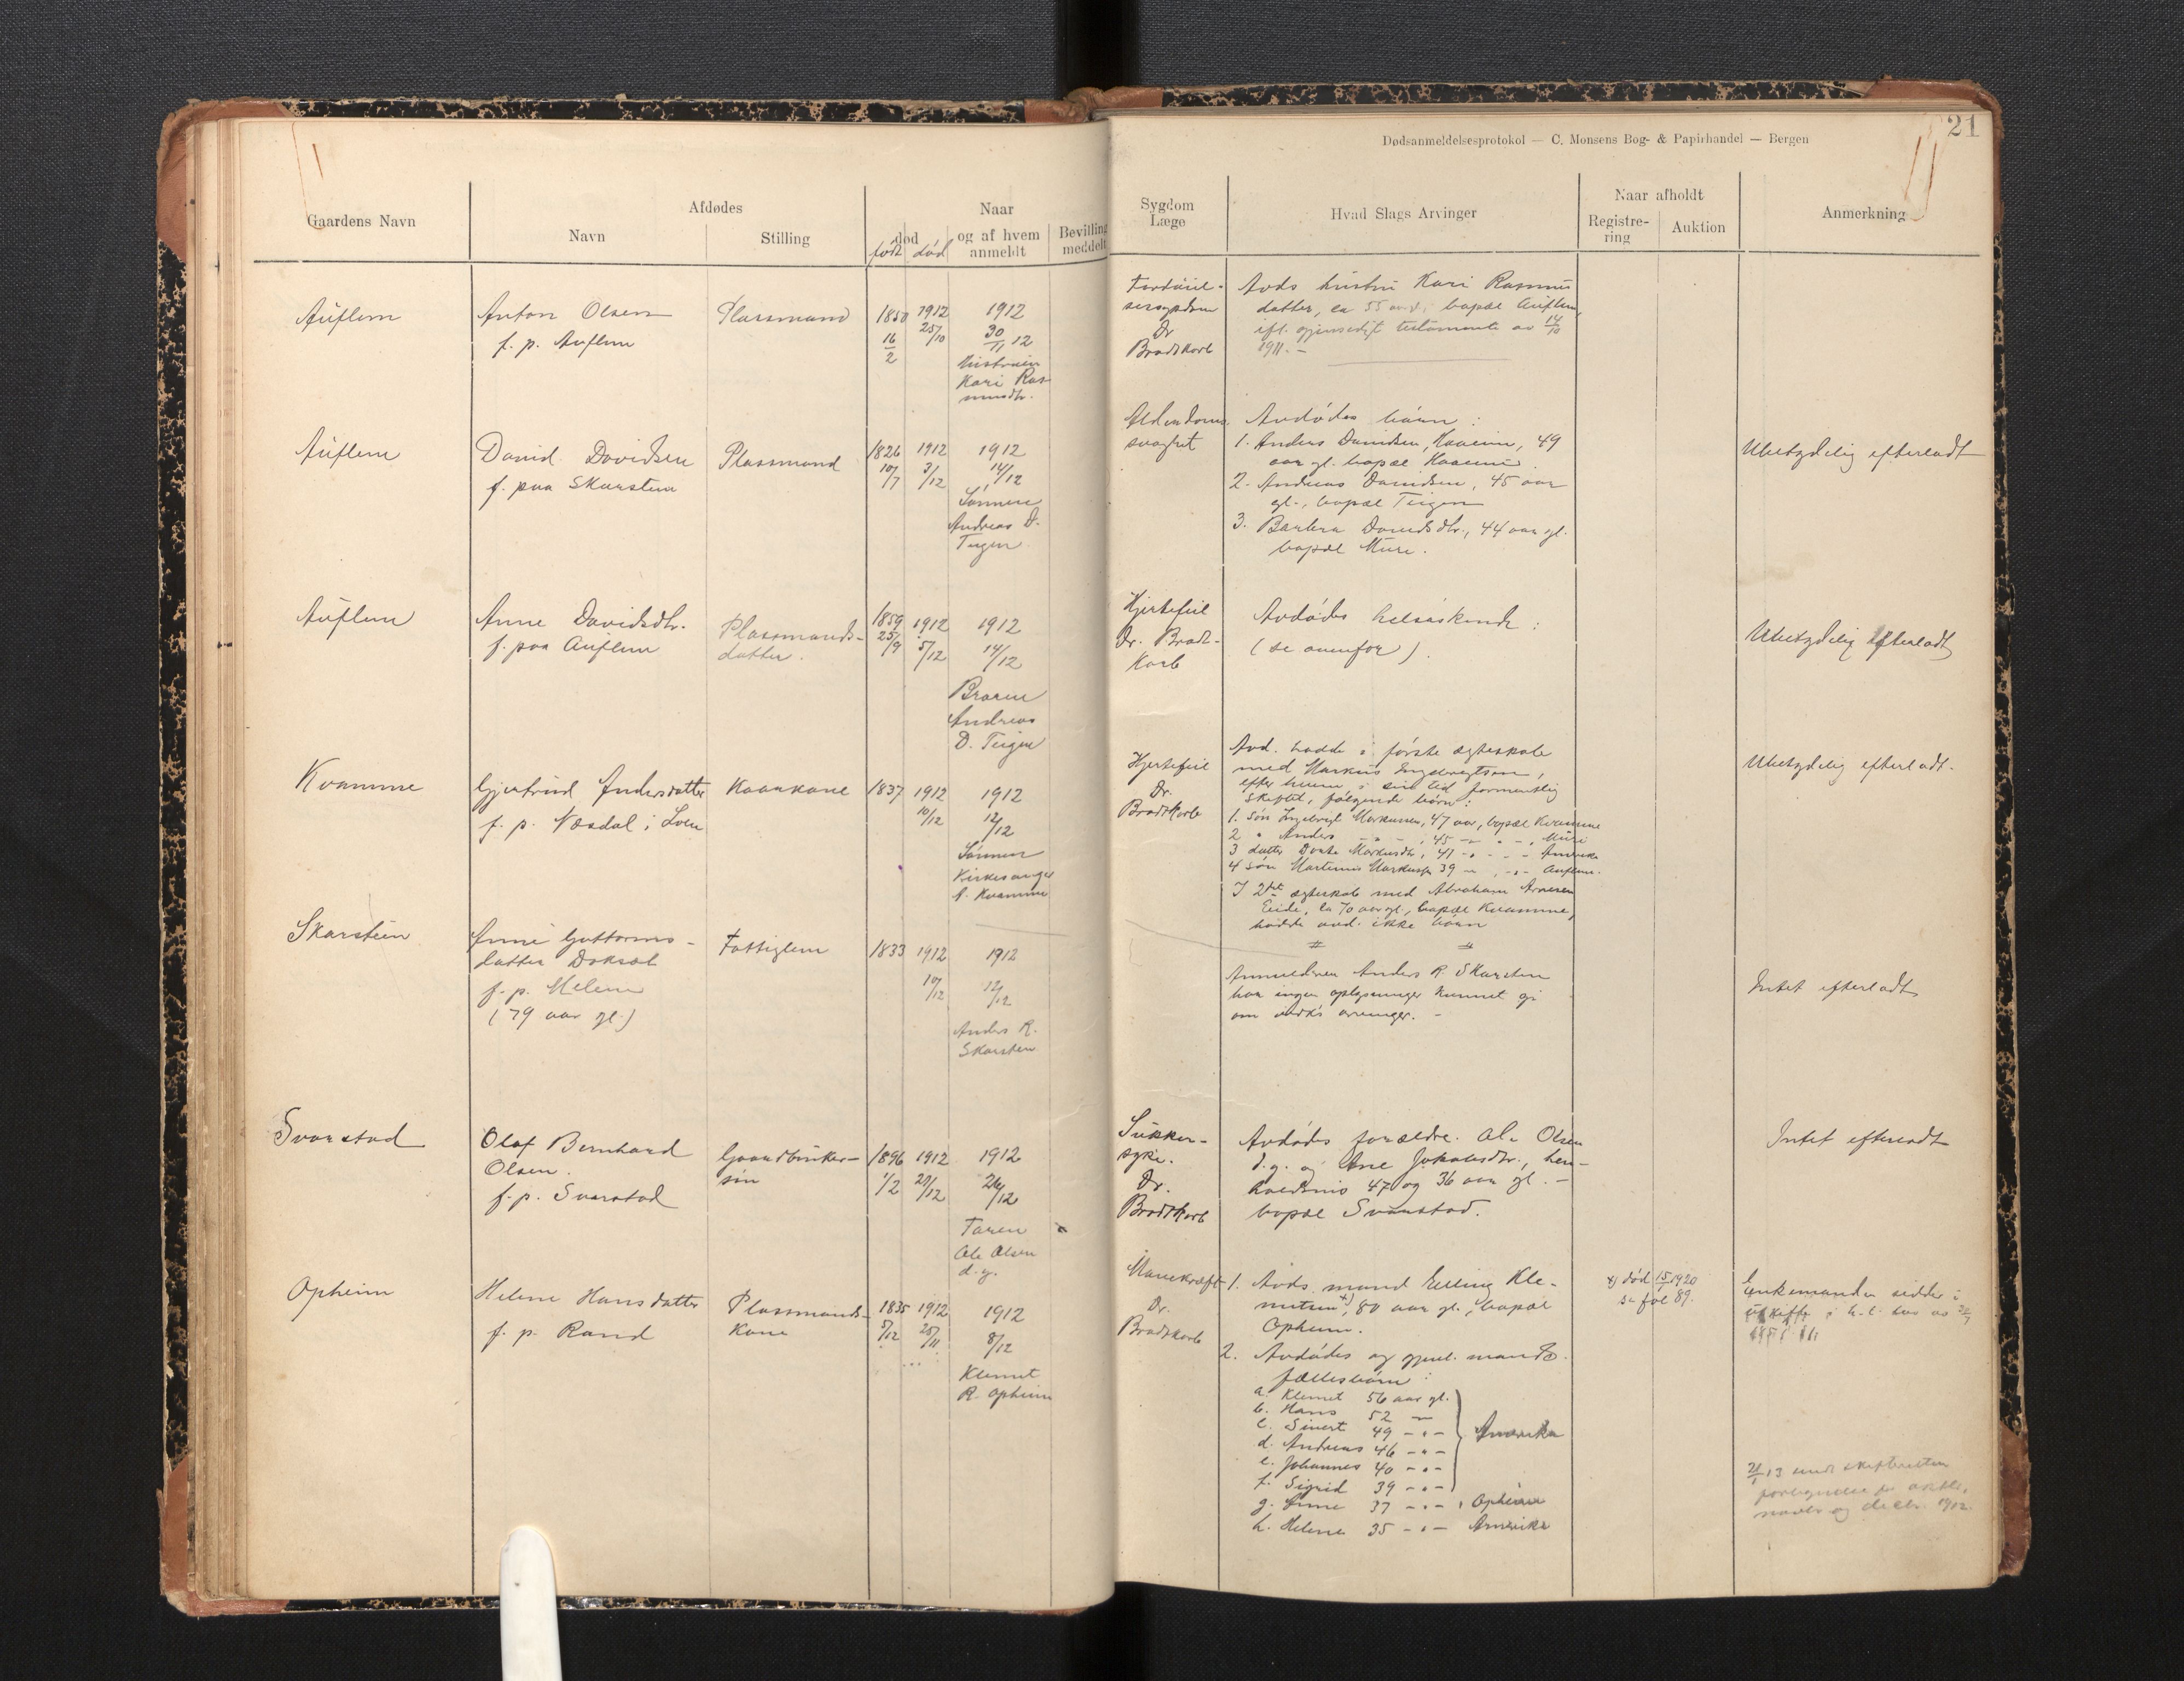 21
Dødsanmeldelsesprotokol — C. Monsens Bog- & Papirhandel — Bergen
Gaardens Navn
Afdødes
Navn
Stilling
Naar
død
født død
og af hvem
anmeldt
Bevilling
meddelt
Sygdom
Læge
Hvad Slags Arvinger
Naar afholdt
Registre-
ring
Auktion
Anmerkning
Auflem
Anton Olsen
f. p. Auflem
Plassmand
1850
16/2
1912
25/10
1912
30/11 12
Hustruen
Kari Ras-
musdtr.
Fordøiel-
sessygdom
Dr.
Bradtkorb
Avds hustru Kari Rasmus
datter, ca 55 aar, bopæl Auflem,
ifl. gjensidigt testamente av 14/10
1911. -
Auflem
David Davidsen
f. paa Skarsten
Plassmand
1826
10/7
1912
3/12
1912
14/12
Sønnen
Andreas D.
Teigen
Alderdoms-
svaghet
Avdødes børn :
1. Anders Davidsen, 49
aar gl. bopæl
2. Andreas Davidsen, 45 aar
gl., bopæl Teigen
3. Barbra Davidsdtr., 44 aar gl.
bopæl Muri.
Ubetydelig efterladt
Auflem
Anne Davidsdtr.
f. paa Auflem
Plassmands-
datter.
1859
25/9
1912
5/12
1912
14/12
Broren
Andreas
D. Teigen
Hjertefeil
Dr. Bradt-
korb
Avdødes helsøskende :
(se ovenfor).
Ubetydelig efterladt
Kvamme
Gjertrud Andersdatter
f. p. Næsdal i Loen
Kaarkone
1837
1912
10/12
1912
12/12
Sønnen
Kirkesanger
Kvamme
Hjertefeil
Dr.
Bradtkorb
Avd. hadde i første ægteskab
med Markus Ingebrigtsen,
efter hvem i sin tid formentlig
skiftet, følgende børn :
1. søn Ingebrigt Markussen, 47 aar, bopæl Kvamme
2 " Anders - " - , 45 - " - , Muri
3 datter Markusdtr, 41 - " - - Amerika
4 søn Martinus Markussen 39 - " - Auflem.
I 2det ægteskab med Abraham Arnesen
Eide, ca 70 aar gl., bopæl Kvamme,
hadde avd. ikke børn
Ubetydelig efterladt.
Skarstein
Anne Guttorms-
datter
f. p. Melem
(79 aar gl.)
Fattiglem
1833
1912
10/12
1912
12/12
Anders R.
Skarsten
Anmelderen Anders R. Skarsten
har ingen oplysninger kunnet gi
om avdøs arvinger. -
Intet efterladt
Svarstad
Olaf Bernhard
Olsen.
f. p. Svarstad
Gaardbruker-
søn
1896
1/2
1912
1912
26/12
Faren
Ole Olsen
d.y.
Sukker-
syke.
Dr.
Bradtkorb
Avdødes forældre. Ole Olsen
d.y. og Ane Jakobsdtr., hen-
holdsvis 47 og 36 aar gl. -
bopæl Svarstad.
Intet efterladt
Opheim
Helene Hansdatter
f. p. Rand
Plassmands-
kone
1835
5/12
1912
25/11
1912
8/12
Klemet
R. Opheim
Dr.
Bradtkorb
1. Avds mand Elling Kle-
metsen x), 80 aar gl., bopæl
Opheim.
2. Avdødes og gjenl. mands
fællesbørn :
a. Klemet 56 aar gl.
b. Hans 52 -"-
c. Sivert 49 -"-
d. Andreas 46 -"-
e. Johannes 40 -"-
f. Sigrid 39 -"-
Amerika
g. Anne 37 -"- , Opheim
h. Helene 35 -"- Amerika
x) død 1920
se fol 89.
Enkemanden sidder i
uskifte i h. t. lov av